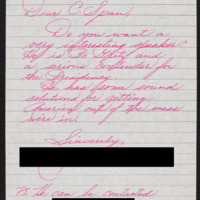 Dear C Span,
Do you want a
very interesting speaker?
He is
and
a serious contender for
the Presidency.
He has some sound
solutions for getting
America out of the mess
we're in.
Sincerely,
P.S. He can be contacted